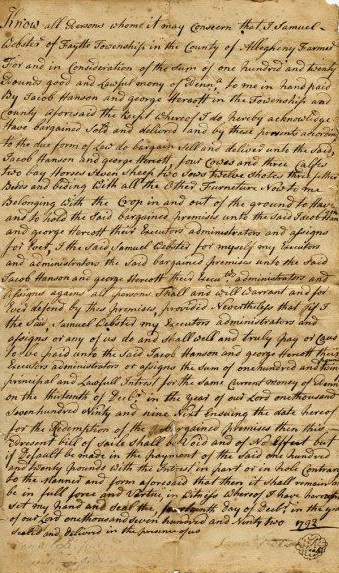 Know all Persons whome it may Concern that I Samuel
Webster of Faytte Township in the County of Allegheny Farmer
For and in Consideration of the Sum of one hundred and twenty
Pounds good and Lawful mony of to me in hand paid
By Jacob Hanson and george Hercott in the Township and
County aforesaid the whereof I do hereby acknowledge
Have bargained Sold and delivred and by these presents acording
to the due form of Law do bargain Sell and deliver unto the Said
Jacob Hanson and george Hercott, four Cowes and three Calfes
two bay Horses Seven Sheep two Sows Twelve Shotes three fether
Beds and beding with all the Other Furneture Now to me
Belonging with the Crop in and out of the ground to have
and to hold the Said bargained premises unto the Said Jacob
and george Hercott their Executors administrators and assigns
for Ever, I the Said Samuel Webster for myself my Executors
and administrators the Said bargained premises unto the Said
Jacob Hanson and george Hercott their administrators and
assigns against all persons Shall and will Warrant and for
Ever defend by this premises provided Nevertheless that if I
the Said Samuel Webster my Executors administrators and
assigns or any of us do and shall well and truly pay or Caus
to be paid unto the Said Jacob Hanson and george Hercott their
Executors administrators or assigns the Sum of one hundred and
principal and Lawfull Intrest for the Same Current money of
on the thirteenth of in the year of our Lord one thousand
Seven hundred Ninty and nine Next Ensuing the date hereof
for the Redemption of the bargained Premises then this
Present bill of Saile Shall be Void and of No Effect but
if Default be made in the payment of the Said one hundred
and twenty pounds with the Intrest in part or in hole Contrary
to the Manner and form aforesaid that then it shall remain
be in full force and Vertue, in Witness Whereof I have
Set my hand and Seal the day of in the year
of our Lord one thousand seven hundred and Ninty two
Sealed and delivred in the presence of us